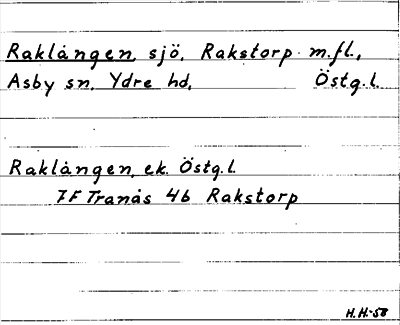 Raklången, sjö, Rakstorp m.fl.,
Asby sn, Ydre hd, Östg.l.
Raklången, ek. Östg.l.
7F Tranås 4b Rakstorp
H.H.-58